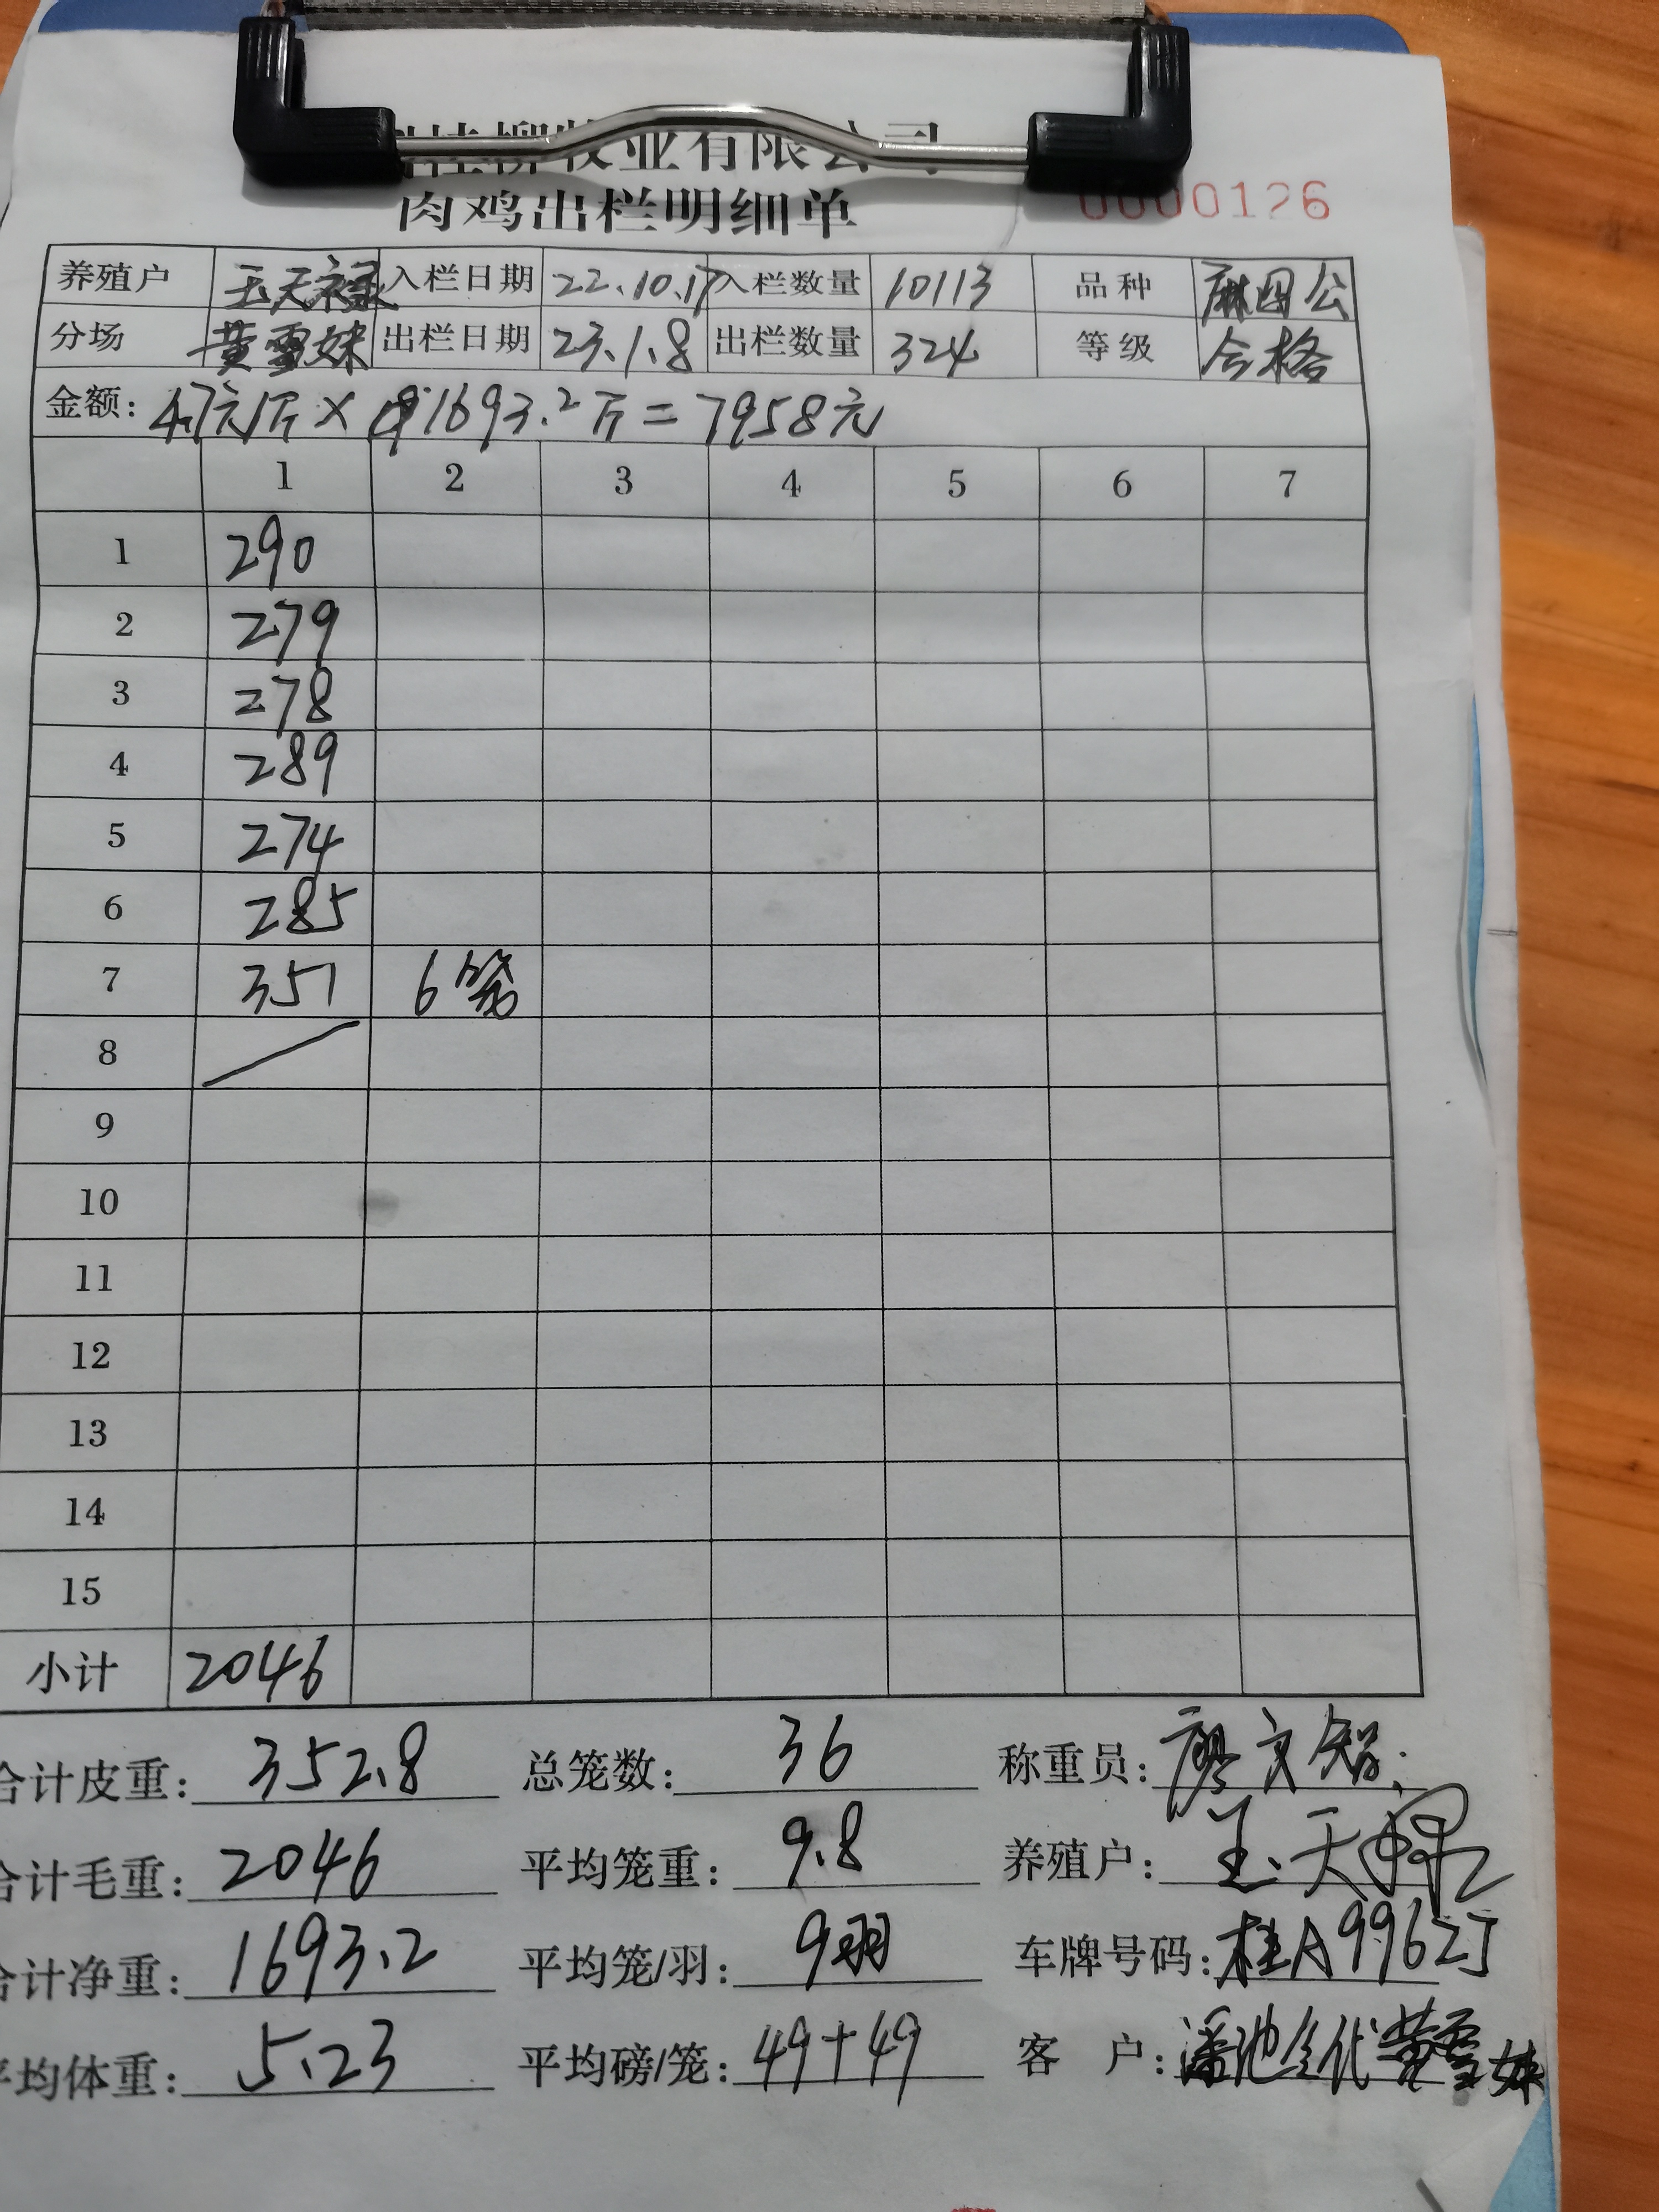 牧业有限公司
肉鸡出栏明细单
0000126
养殖户 玉天禄 入栏日期 22.10.17 入栏数量 10113 品种 麻四公
分场 黄雪妹 出栏日期 23.1.8 出栏数量 324 等级 合格
金额: 4.7元/斤 × 1693.2斤 = 7958元
1 2 3 4 5 6 7
1 290
2 279
3 278
4 289
5 274
6 285
7 351 6笼
8
9
10
11
12
13
14
15
小计 2046
合计皮重: 352.8 总笼数: 36 称重员: 廖文
合计毛重: 2046 平均笼重: 9.8 养殖户: 玉天禄
合计净重: 1693.2 平均笼/羽: 9羽 车牌号码: 桂A9962J
平均体重: 5.23 平均磅/笼: 49+49 客 户: 代黄雪妹